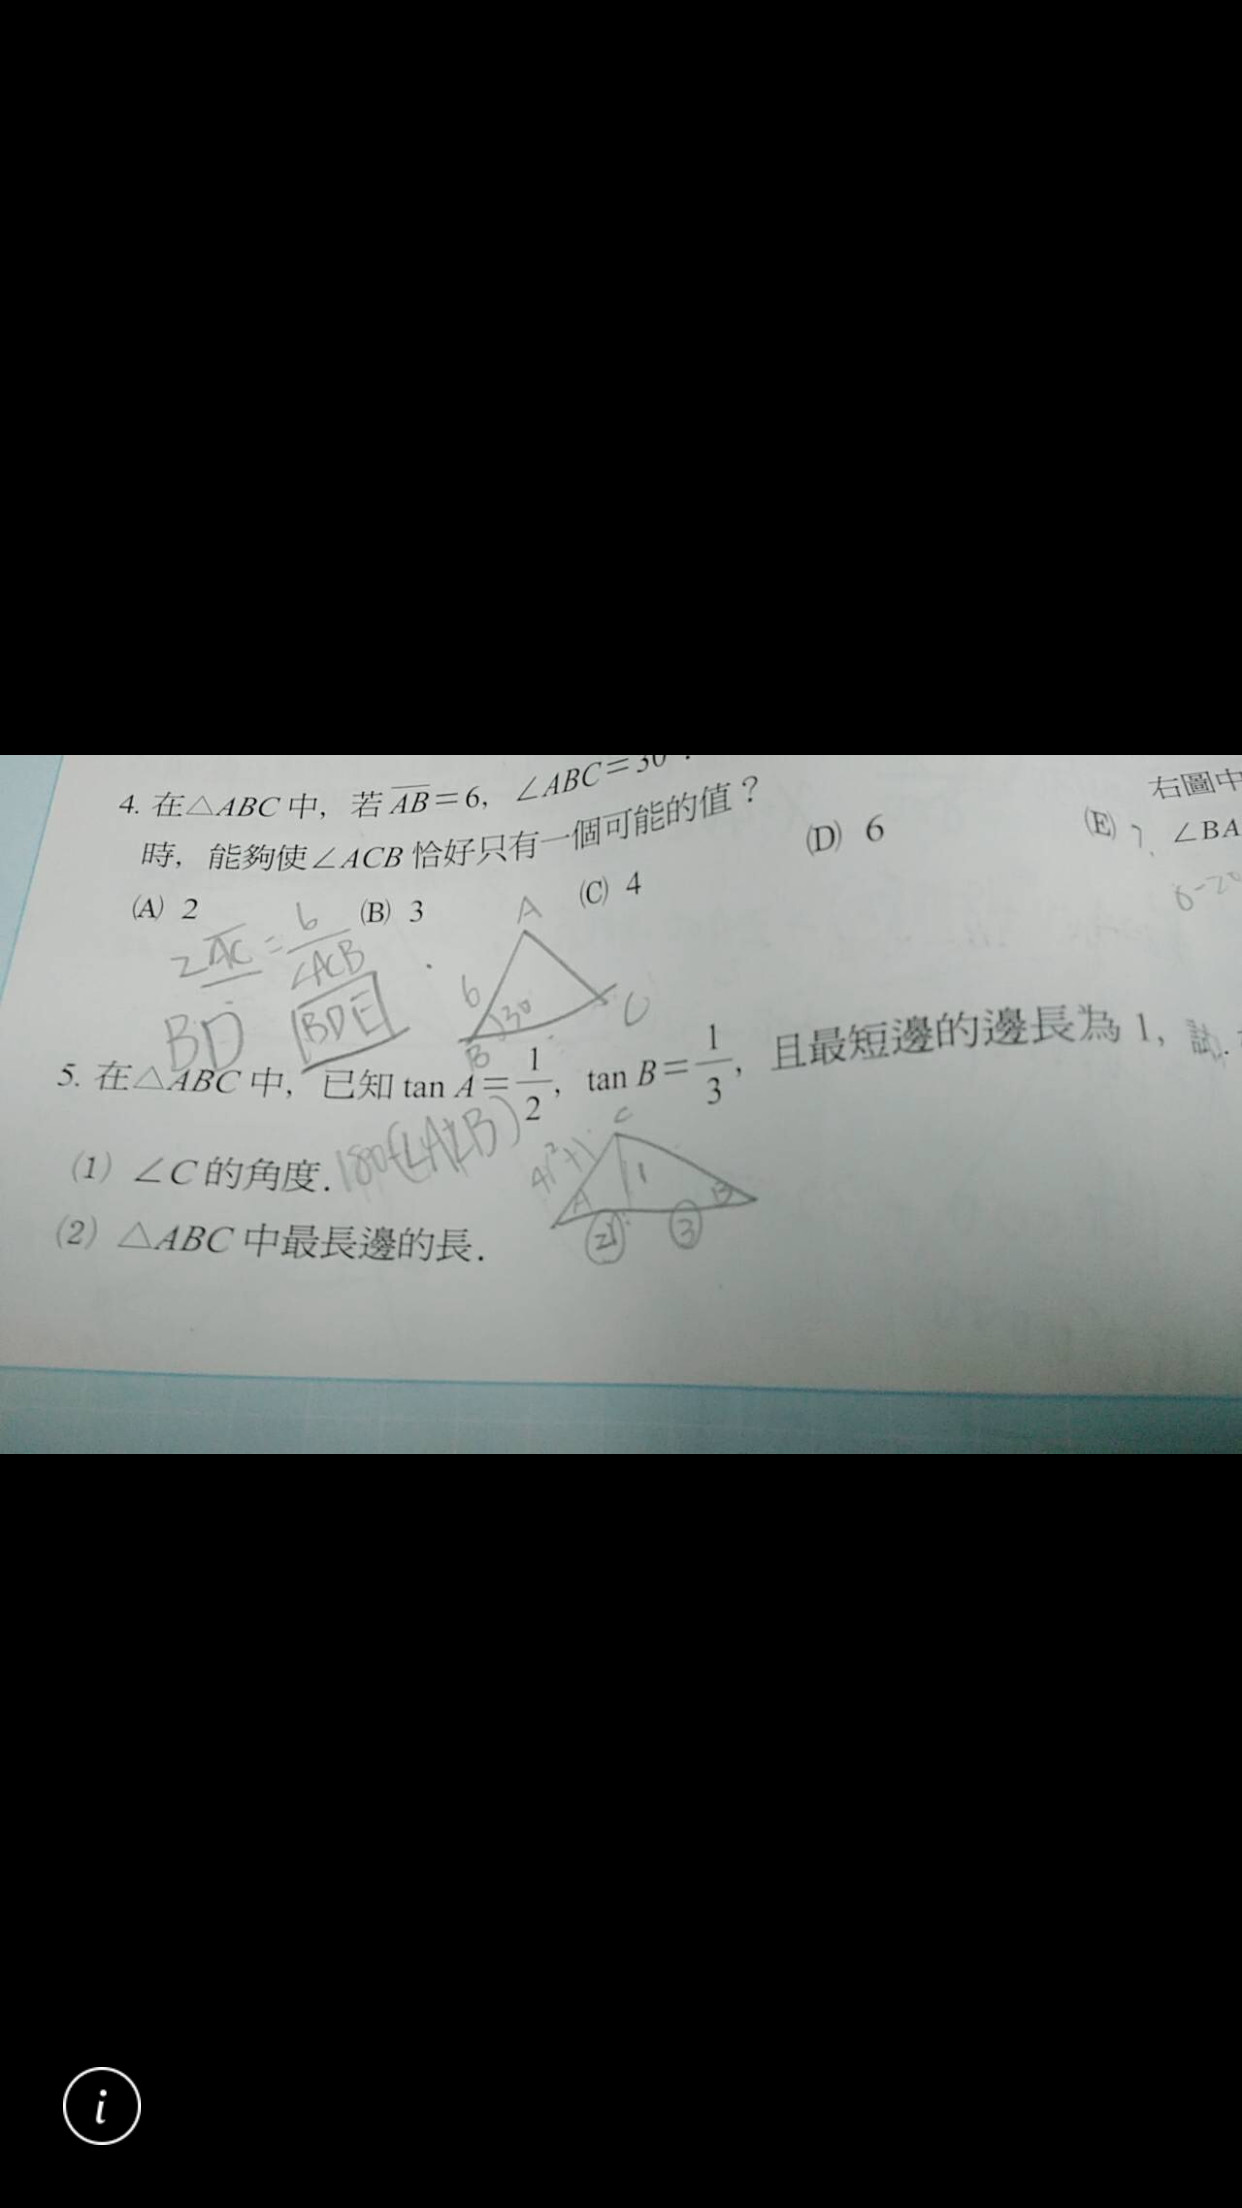 4. 在△ABC中，若AB=6，∠ABC=30
時，能夠使∠ACB恰好只有一個可能的值？
(A) 2 (B) 3 (C) 4 (D) 6 (E) 7
右圖中
∠BA
2AC = 6/∠ACB
BD
BDE
A
6
30
B
C
5. 在△ABC中，已知 tan A=1/2，tan B=1/3，且最短邊的邊長為1，試
(1) ∠C的角度.
180-(∠A+∠B)
(2) △ABC中最長邊的長.
C
1
A
B
2
3
i